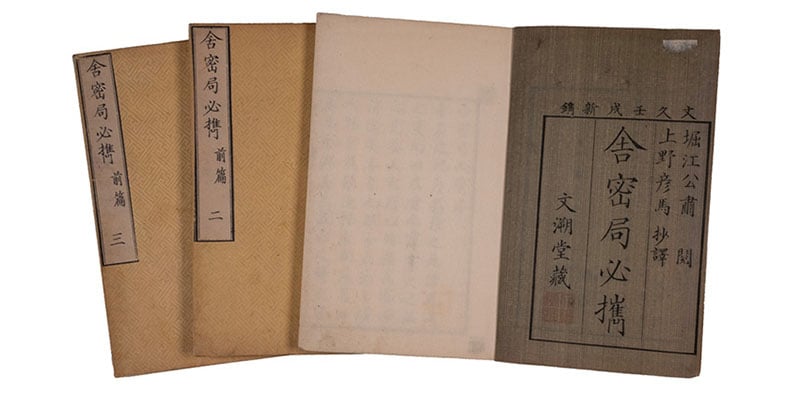 舎密局必携 前篇 三
舎密局必携 前篇 二
文久壬戌新鐫
堀江公粛 閲
上野彦馬 抄譯
舎密局必攜
文溯堂藏